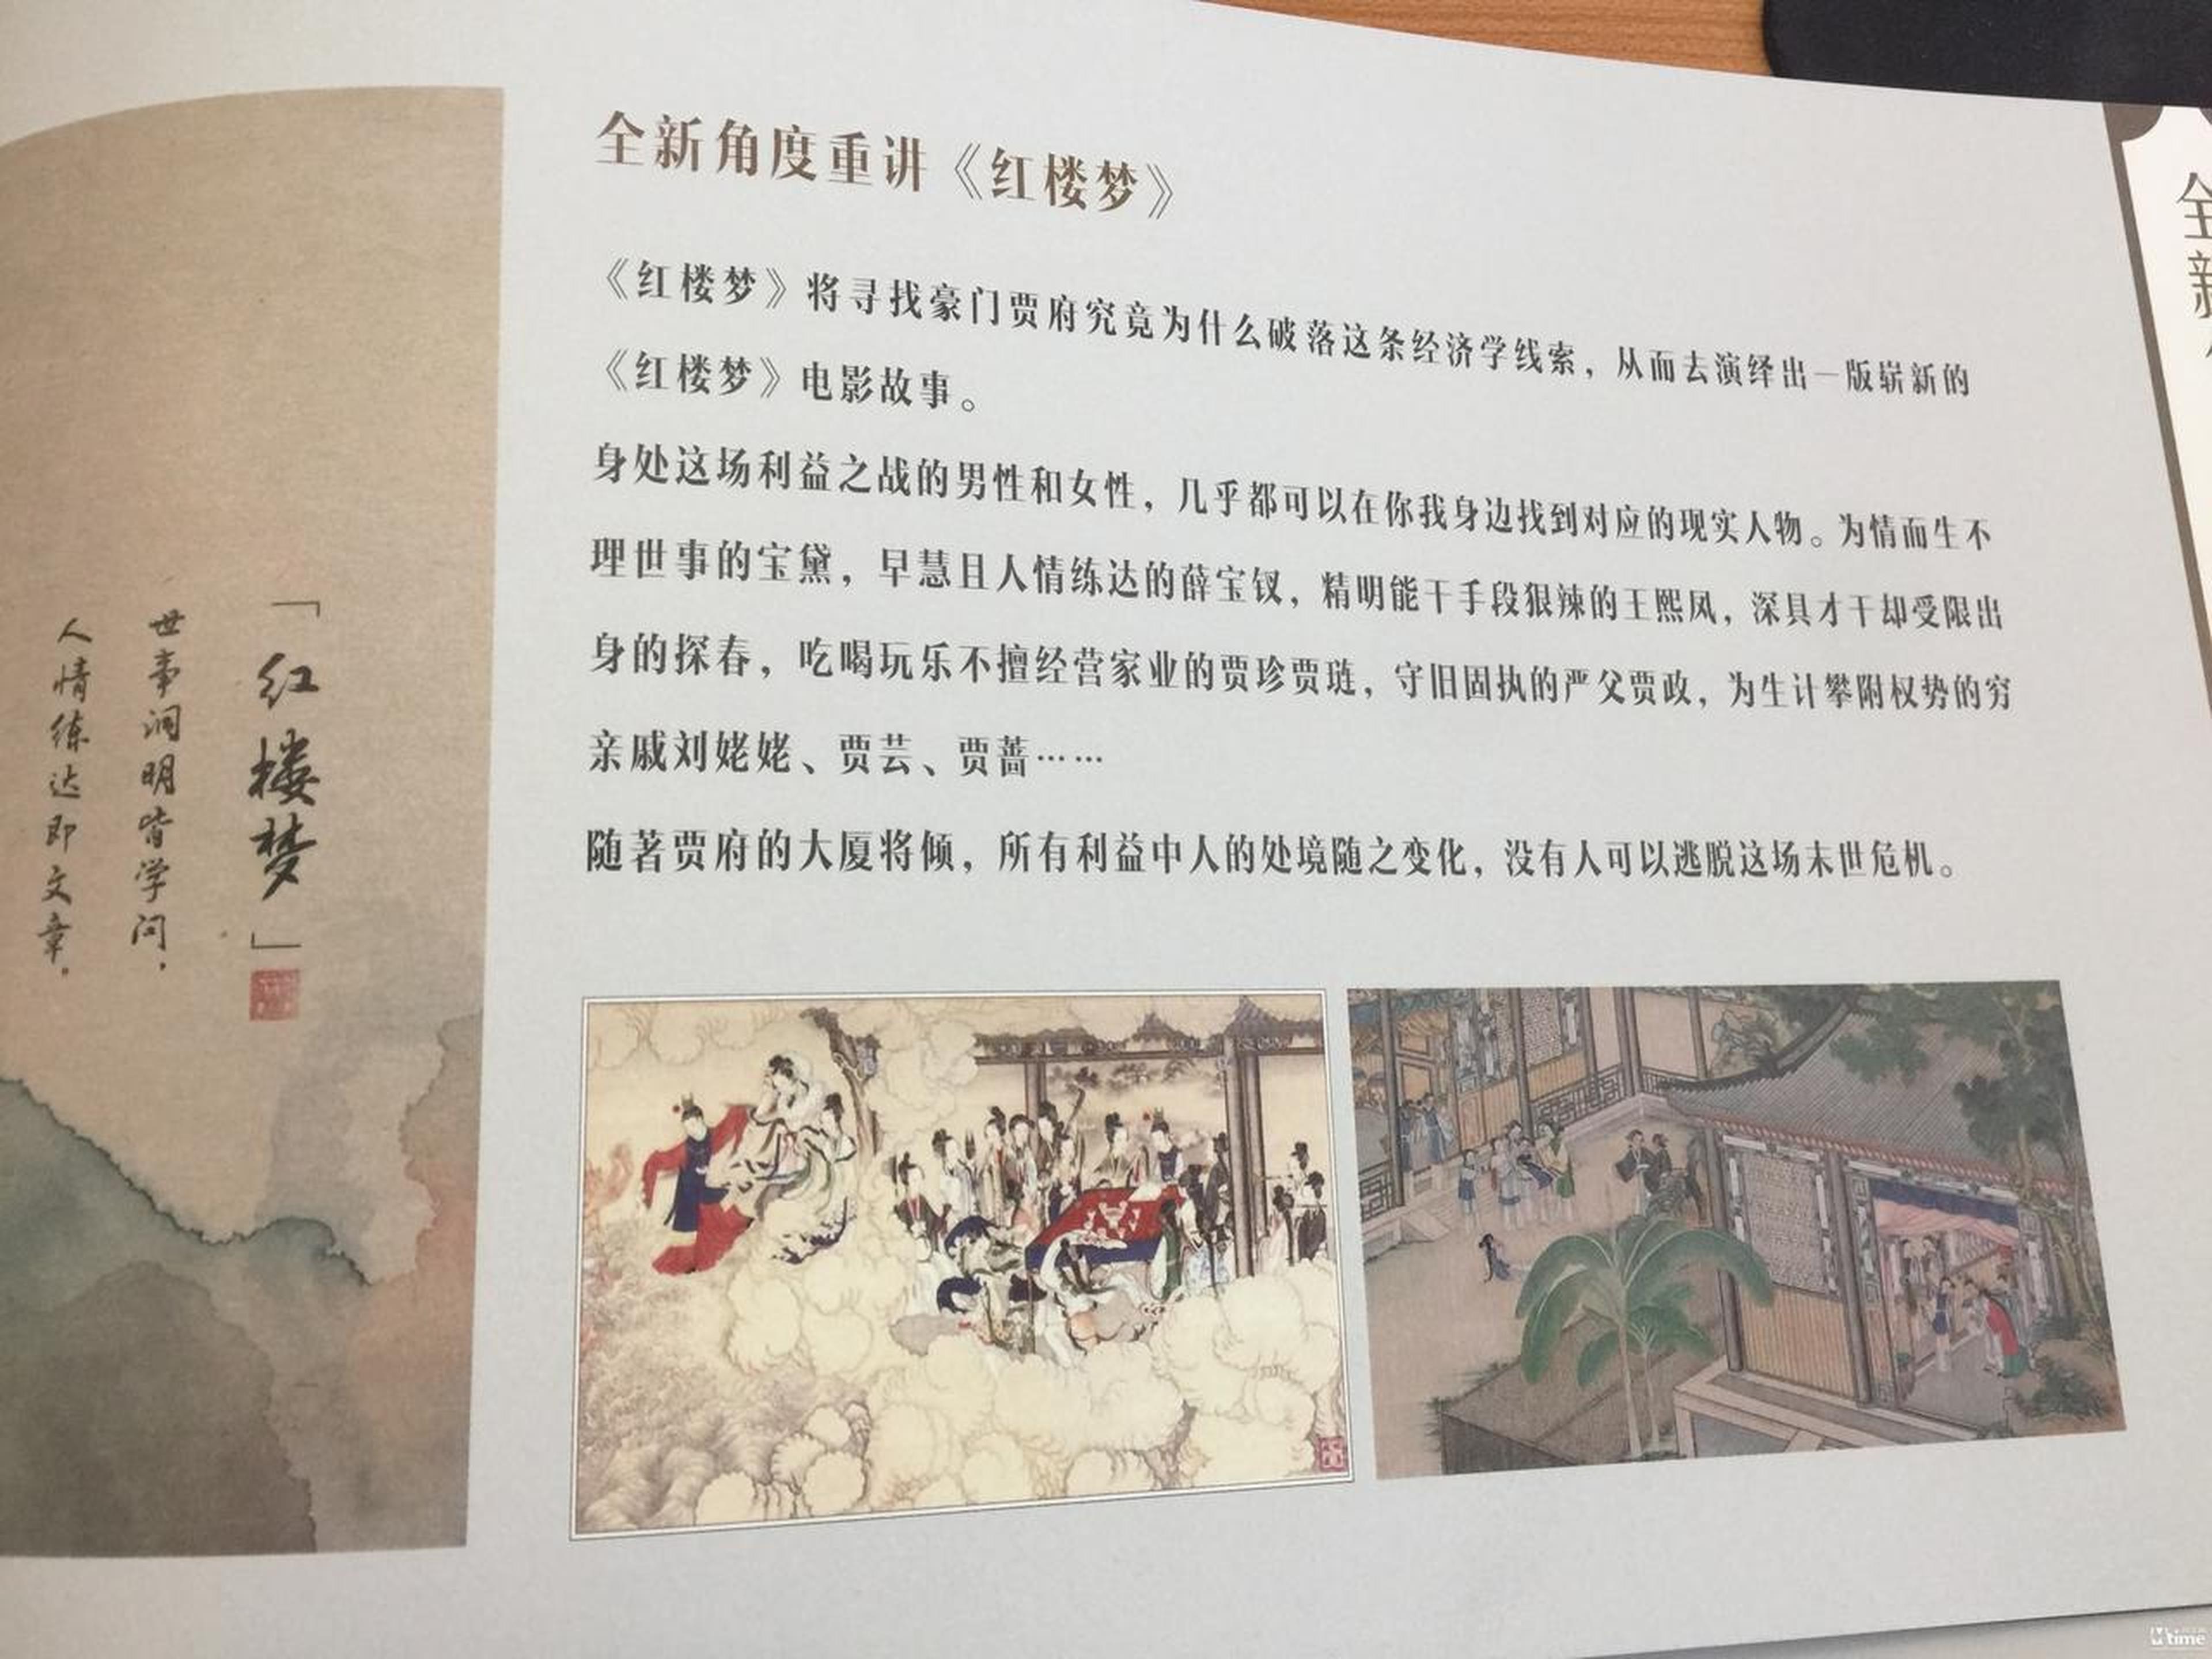 全新角度重讲《红楼梦》
《红楼梦》将寻找豪门贾府究竟为什么破落这条经济学线索，从而去演绎出一版崭新的
《红楼梦》电影故事。
身处这场利益之战的男性和女性，几乎都可以在你我身边找到对应的现实人物。为情而生不
理世事的宝黛，早慧且人情练达的薛宝钗，精明能干手段狠辣的王熙凤，深具才干却受限出
身的探春，吃喝玩乐不擅经营家业的贾珍贾琏，守旧固执的严父贾政，为生计攀附权势的穷
亲戚刘姥姥、贾芸、贾蔷……
随著贾府的大厦将倾，所有利益中人的处境随之变化，没有人可以逃脱这场末世危机。
「红楼梦」
世事洞明皆学问，
人情练达即文章。
全新
time